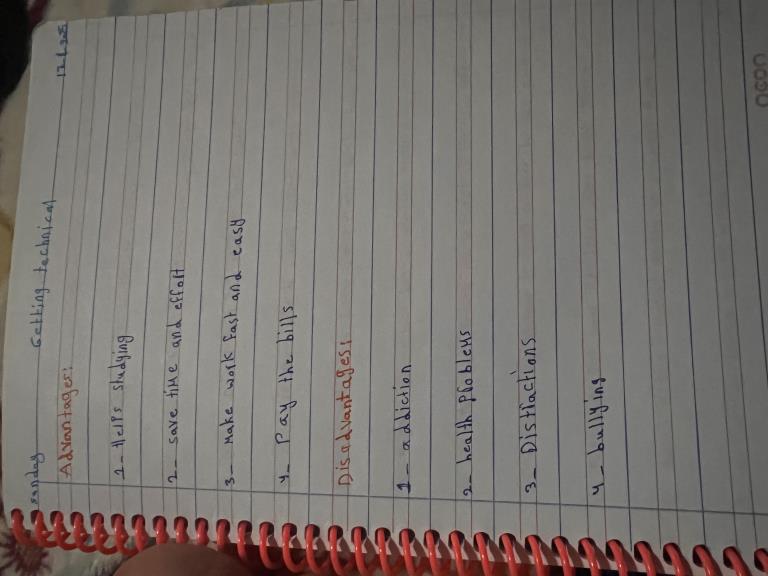 sunday Getting technical
Advantages:
1- Helps studying
2- save time and effort
3- Make work fast and easy
4- Pay the bills
Disadvantages:
1- addiction
2- health problems
3- Distractions
4- bullying